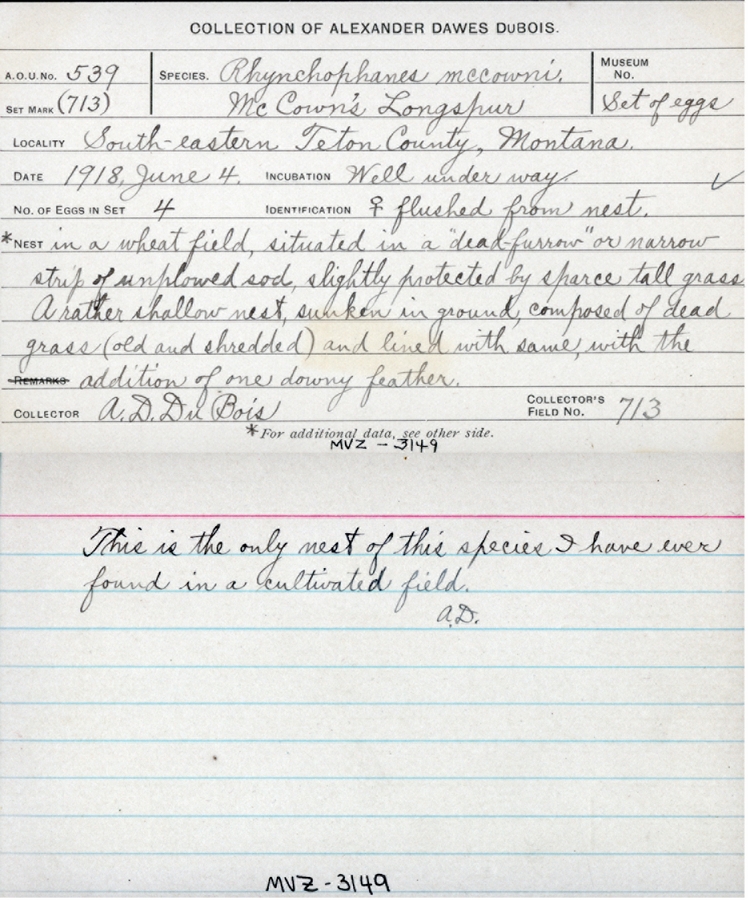 COLLECTION OF ALEXANDER DAWES DUBOIS.
A.O.U. No. 539 SPECIES. Rhynchophanes mccowni. MUSEUM No.
SET MARK (713) McCown's Longspur Set of eggs
LOCALITY South-eastern Teton County, Montana.
DATE 1918, June 4. INCUBATION Well under way. ✓
NO. OF EGGS IN SET 4 IDENTIFICATION ♀ flushed from nest.
*NEST in a wheat field, situated in a "dead-furrow" or narrow
strip of unplowed sod, slightly protected by sparce tall grass
A rather shallow nest, sunken in ground, composed of dead
grass (old and shredded) and lined with same, with the
REMARKS addition of one downy feather.
COLLECTOR A.D. Du Bois COLLECTOR'S FIELD NO. 713
*For additional data, see other side.
MVZ - 3149
This is the only nest of this species I have ever
found in a cultivated field.
A.D.
MVZ - 3149